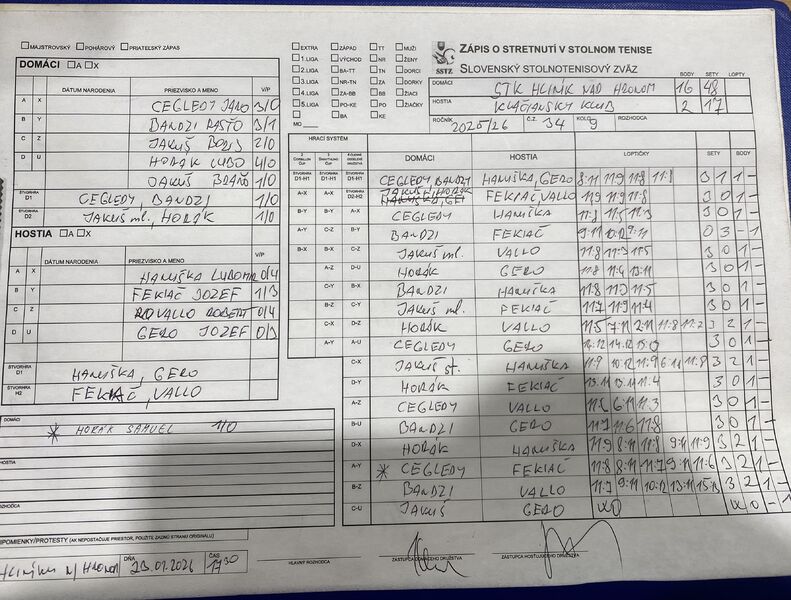 MAJSTROVSKÝ POHÁROVÝ PRIATEĽSKÝ ZÁPAS
EXTRA ZÁPAD TT MUŽI
1.LIGA VÝCHOD NR ŽENY
2.LIGA BA-TT TN DORCI
3.LIGA NR-TN ZA DORKY
4.LIGA ZA-BB BB ŽIACI
5.LIGA PO-KE PO ŽIAČKY
BA KE
MO
SSTZ
ZÁPIS O STRETNUTÍ V STOLNOM TENISE
SLOVENSKÝ STOLNOTENISOVÝ ZVÄZ
BODY SETY LOPTY
DOMÁCI STK HLINÍK NAD HRONOM 16 48
HOSTIA KLAČIANSKY KLUB 2 17
ROČNÍK 2025/26 Č.Z. 34 KOLO 9 ROZHODCA
DOMÁCI A X
DÁTUM NARODENIA PRIEZVISKO A MENO V/P
A X CEGLEDY JANO 3/0
B Y BANDZI RASŤO 3/1
C Z JAKUŠ BORIS 2/0
D U HORÁK ĽUBO 4/0
JAKUŠ BRAŇO 1/0
ŠTVORHRA D1 CEGLEDY, BANDZI 1/0
ŠTVORHRA D2 JAKUŠ ml., HORÁK 1/0
HOSTIA A X
DÁTUM NARODENIA PRIEZVISKO A MENO V/P
A X HANUŠKA LUBOMIR 0/4
B Y FEKIAČ JOZEF 1/3
C Z VALLO ROBERT 0/4
D U GERO JOZEF 0/3
ŠTVORHRA D1 HANUŠKA, GERO
ŠTVORHRA H2 FEKIAČ, VALLO
DOMÁCI
* HORÁK SAMUEL 1/0
HOSTIA
ROZHODCA
PRIPOMIENKY/PROTESTY (AK NEPOSTAČUJE PRIESTOR, POUŽITE ZADNÚ STRANU ORIGINÁLU)
HLINÍK N/HRONOM DŇA 23.01.2026 ČAS 17:30
HRACÍ SYSTÉM
DOMÁCI HOSTIA LOPTIČKY SETY BODY
ŠTVORHRA D1-H1 ŠTVORHRA D1-H1 ŠTVORHRA D1-H1 CEGLEDY, BANDZI HANUŠKA, GERO 8:11 11:9 11:8 11:8 3 1 1 -
A-X A-X ŠTVORHRA D2-H2 JAKUŠ, HORÁK FEKIAČ, VALLO 11:9 11:9 11:8 3 0 1 -
B-Y B-Y A-X CEGLEDY HANUŠKA 11:8 11:5 11:3 3 0 1
A-Y C-Z B-Y BANDZI FEKIAČ 9:11 10:12 9:11 0 3 - 1
B-X B-X C-Z JAKUŠ ml. VALLO 11:8 11:3 11:5 3 0 1 -
A-Z D-U HORÁK GERO 11:8 11:4 13:11 3 0 1 -
C-Y B-X BANDZI HANUŠKA 11:8 11:3 11:5 3 0 1 -
B-Z A-Y JAKUŠ ml. FEKIAČ 11:7 11:9 11:4 3 0 1 -
C-X D-Z HORÁK VALLO 11:5 7:11 2:11 11:8 11:2 3 2 1 -
A-Y A-U CEGLEDY GERO 14:12 14:12 3 0 1 -
C-X JAKUŠ st. HANUŠKA 11:9 10:12 11:9 6:11 11:8 3 2 1 -
D-Y HORÁK FEKIAČ 13:11 13:11 11:4 3 0 1 -
A-Z CEGLEDY VALLO 11:3 3 0 1 -
B-U BANDZI GERO 11:7 11:6 11:8 3 0 1 -
D-X HORÁK HANUŠKA 11:9 8:11 11:8 9:11 11:9 3 2 1 -
A-Y * CEGLEDY FEKIAČ 11:8 8:11 11:7 9:11 11:6 3 2 1 -
B-Z BANDZI VALLO 11:7 9:11 10:12 13:11 15:13 3 2 1 -
C-U JAKUŠ GERO WO WO 1 -
HLAVNÝ ROZHODCA ZÁSTUPCA DOMÁCEHO DRUŽSTVA ZÁSTUPCA HOSŤUJÚCEHO DRUŽSTVA